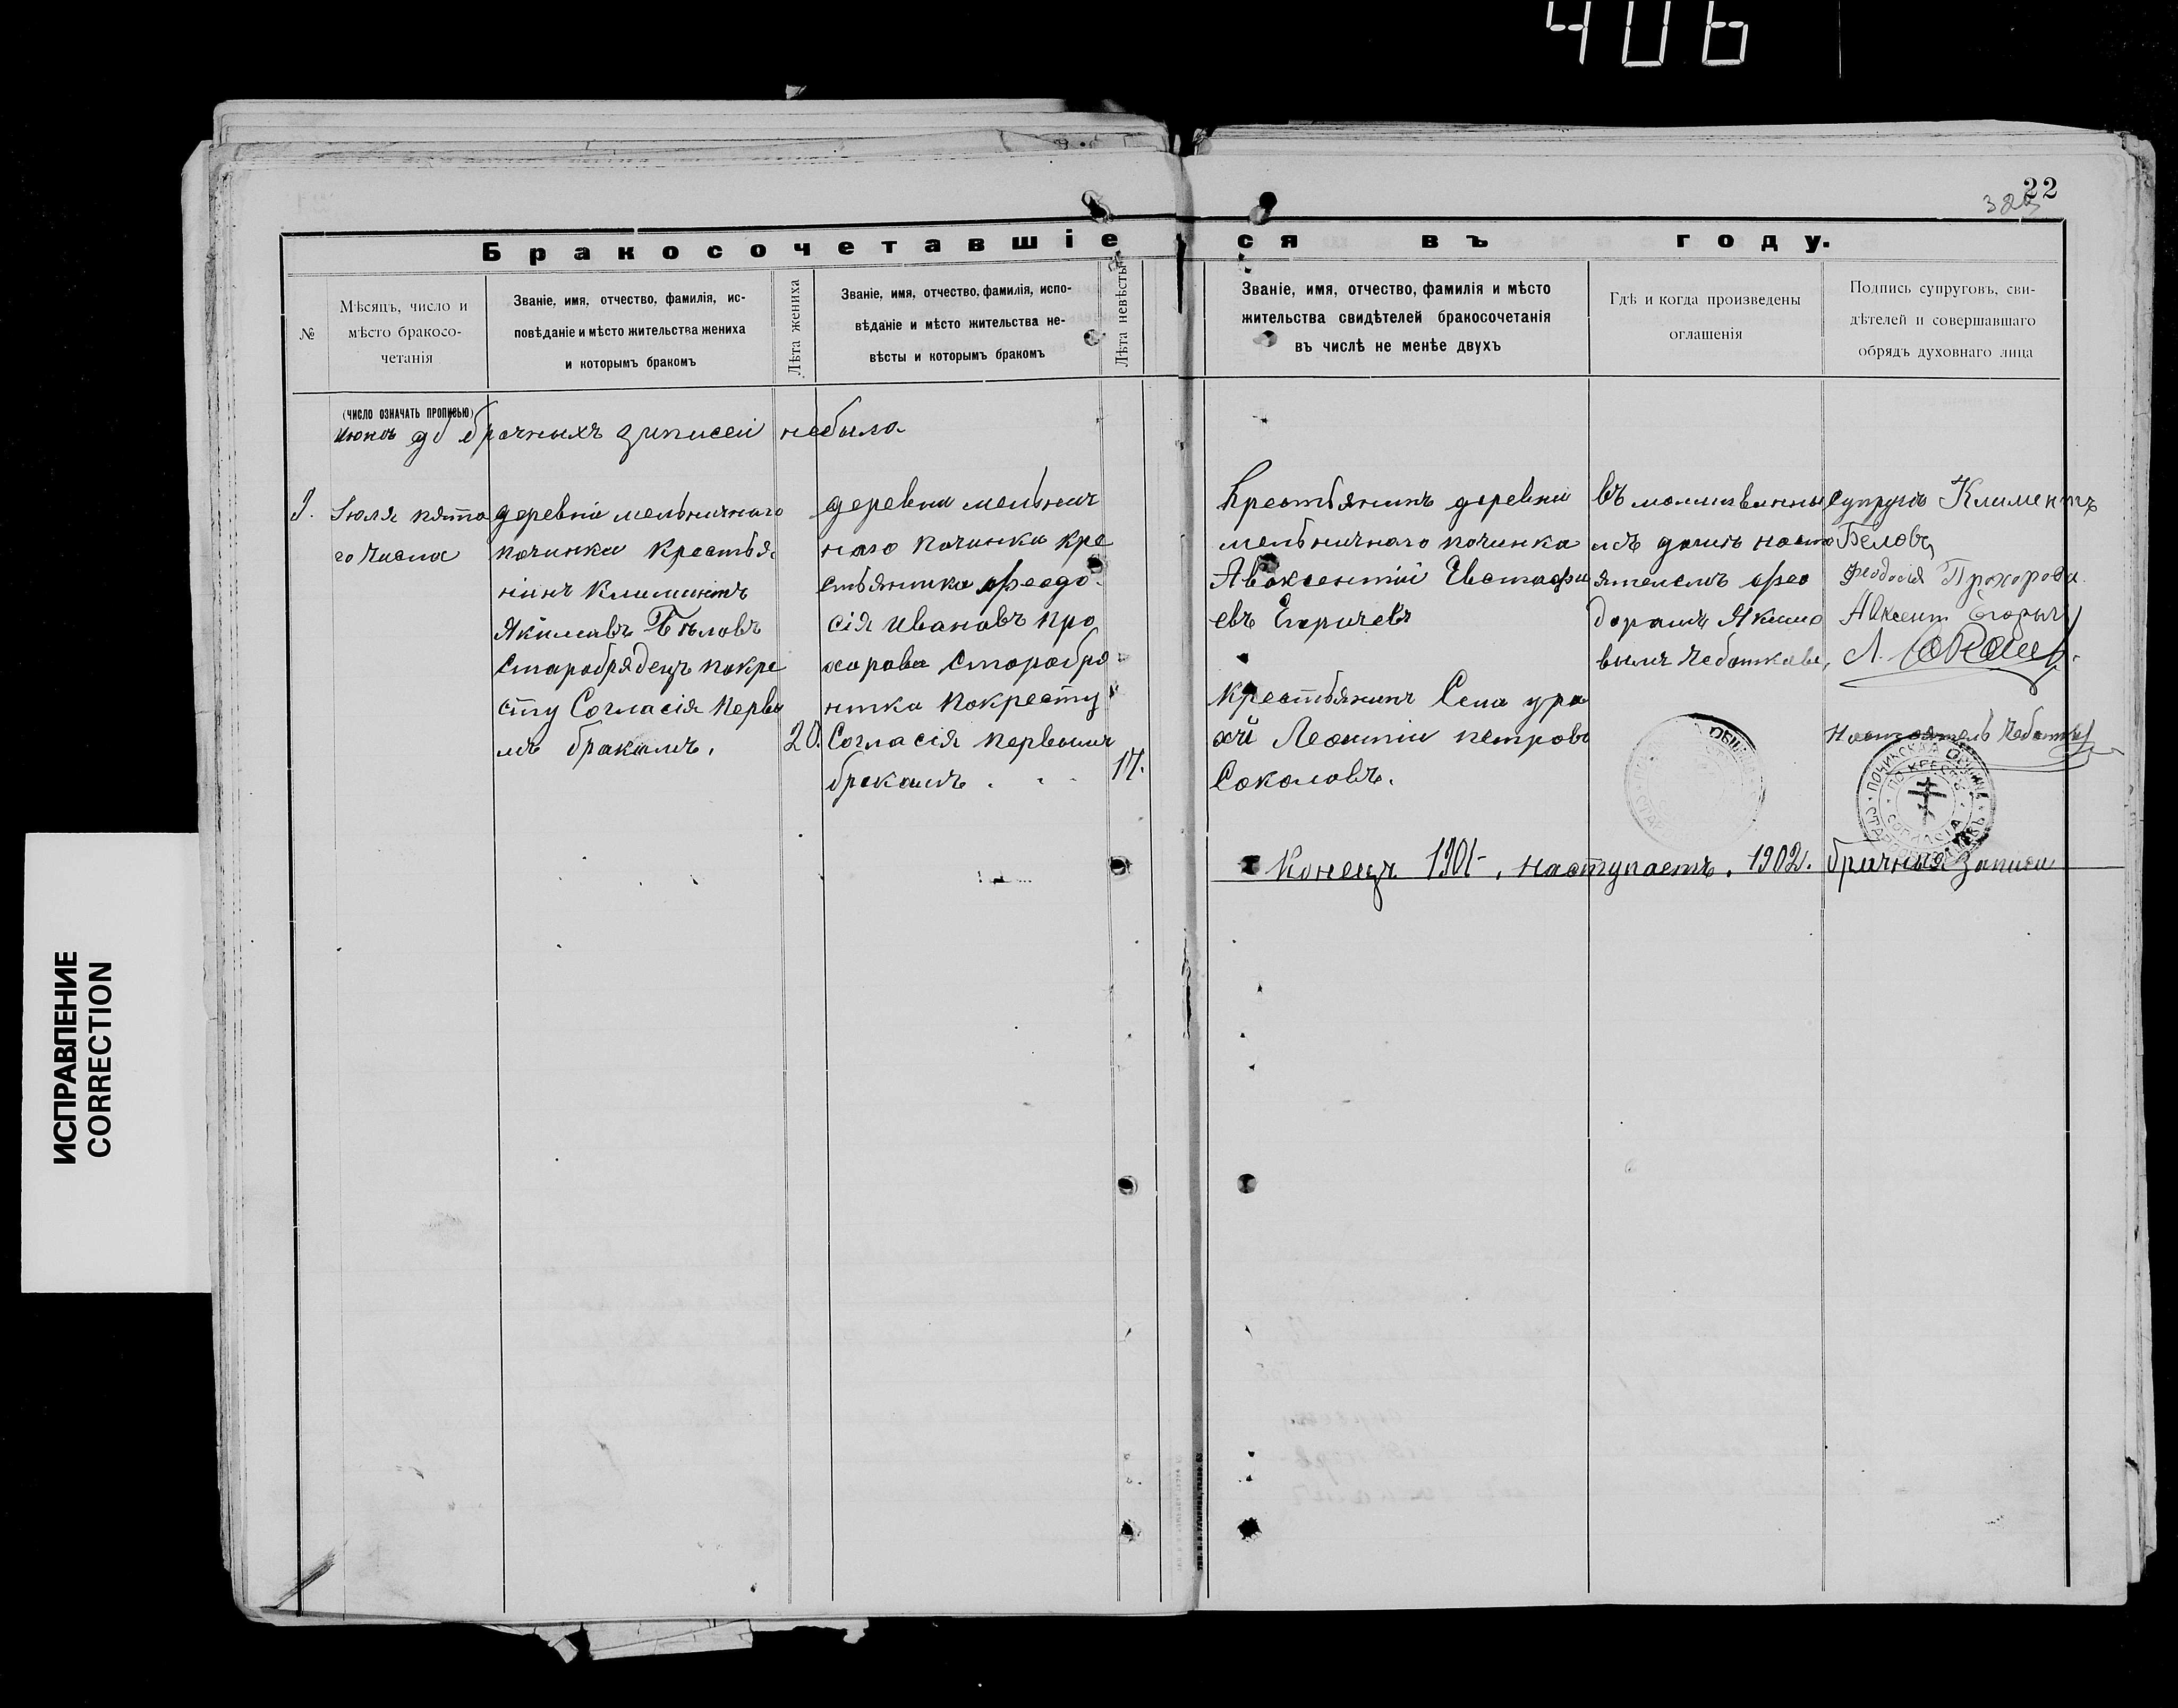 406
22
Бракосочетавшіеся въ году.
№
Мѣсяцъ, число и
мѣсто бракосо-
четанія
Званіе, имя, отчество, фамилія, ис-
повѣданіе и мѣсто жительства жениха
и которымъ бракомъ
Лѣта жениха
Званіе, имя, отчество, фамилія, испо-
вѣданіе и мѣсто жительства не-
вѣсты и которымъ бракомъ
Лѣта невѣсты
Званіе, имя, отчество, фамилія и мѣсто
жительства свидѣтелей бракосочетанія
въ числѣ не менѣе двухъ
Гдѣ и когда произведены
оглашенія
Подпись супруговъ, сви-
дѣтелей и совершавшаго
обрядъ духовнаго лица
(число означать прописью)
брачныхъ записей небыло
1.
Іюля пято
го числа
деревни мельничнаго
починка крестья
нинъ Климентъ
Якимавъ Бѣловъ
Старобрядецъ покре
сту Согласія первы
мъ бракамъ.
20.
деревни мельнич
наго починка кре
стьянинка Феодо
сія Ивановъ про
харова Старобря
нтка покресту
Согласія первымъ
бракамъ.
17.
Крестьянинъ деревни
мельничнаго починка
Авоксентій Евстафи
евъ Егоричевъ
Крестьянинъ Села ура
хй Леонтіи петровъ
Соколовъ.
въ молитвенны
мъ домѣ насто
ятелемъ Фео
дорамъ Якимо
вымъ Чеботкавы,
супругъ Климентъ
Беловъ,
Феодосія Прохорова
Авксент Егорычъ
Настоятель Чеботкавъ
ПО КРЕСТУ
СОГЛАСІЯ
Конецъ 1901, наступаетъ, 1902. брачная записи
ИСПРАВЛЕНИЕ
CORRECTION